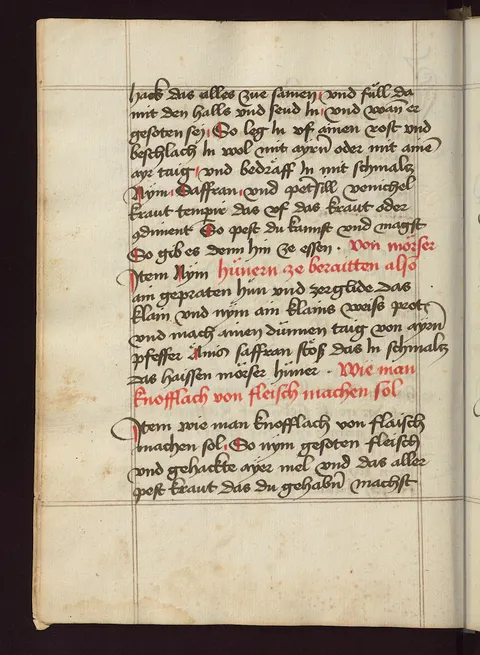 hack das alles zue samen vnd füll da
mit den halls vnd seud In vnd wan er
gesoten sej So leg In vf ainen rost vnd
beschlach In wol mit ayrn oder mit aine
ayr taig vnd bedräff In mit schmalz
Nÿm Saffran vnd petersill venichel
kraut tempir das vf das kraut oder
So pest du kanst vnd magst
So gib es denn hin ze essen . von mörser
Item Nÿm hünern ze beraitten also
ain gepraten hun vnd zerglide das
klain vnd nÿm ain klains weiss prot
vnd mach ainen dünnen taig von ayrn
pfeffer saffran stöß das In schmalz
das haissen mörser hüner . Wie man
knofflach von fleisch machen sol
Item wie man knofflach von flaisch
machen sol So nym gesoten fleisch
vnd gehackte ayer mel vnd das aller
pest kraut das du gehabn machst